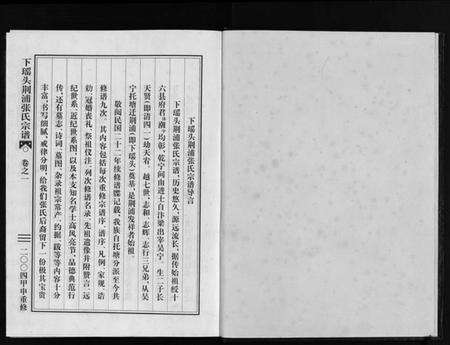 下瑶头荆浦张氏宗谱导言
下瑶头荆浦张氏宗谱，历史悠久，源远流长，据传始祖绶十
六县府君“潮”均彰，乾宁间由进士自汴梁出宰吴宁，生二子长
天贤（即清四一）幼天宥，越七世，志和、志辉、志行三兄弟，从吴
宁托塘迁荆浦（即下瑶头）奠基，是荆浦发祥者始祖。
敬阅民国二十二年续修谱牒记载，我族自托塘分派至今共
修谱九次，其内容包括每次重修宗谱序、谱序、凡例、家规、诰
勅、冠婚丧礼、祭祖仪注、列次修谱名录、先祖遗像并附赞言、远
纪世系、近纪世系图、以及本支知名学士高风亮节，品德典范行
传，还有墓志、诗词、墓图、杂录祖宗常产、约据、跋等等内容十分
丰富，书写细腻，戒律分明，给我们张氏后裔留下一份极其宝贵
下瑶头荆浦张氏宗谱
卷之一
二〇〇四甲申重修